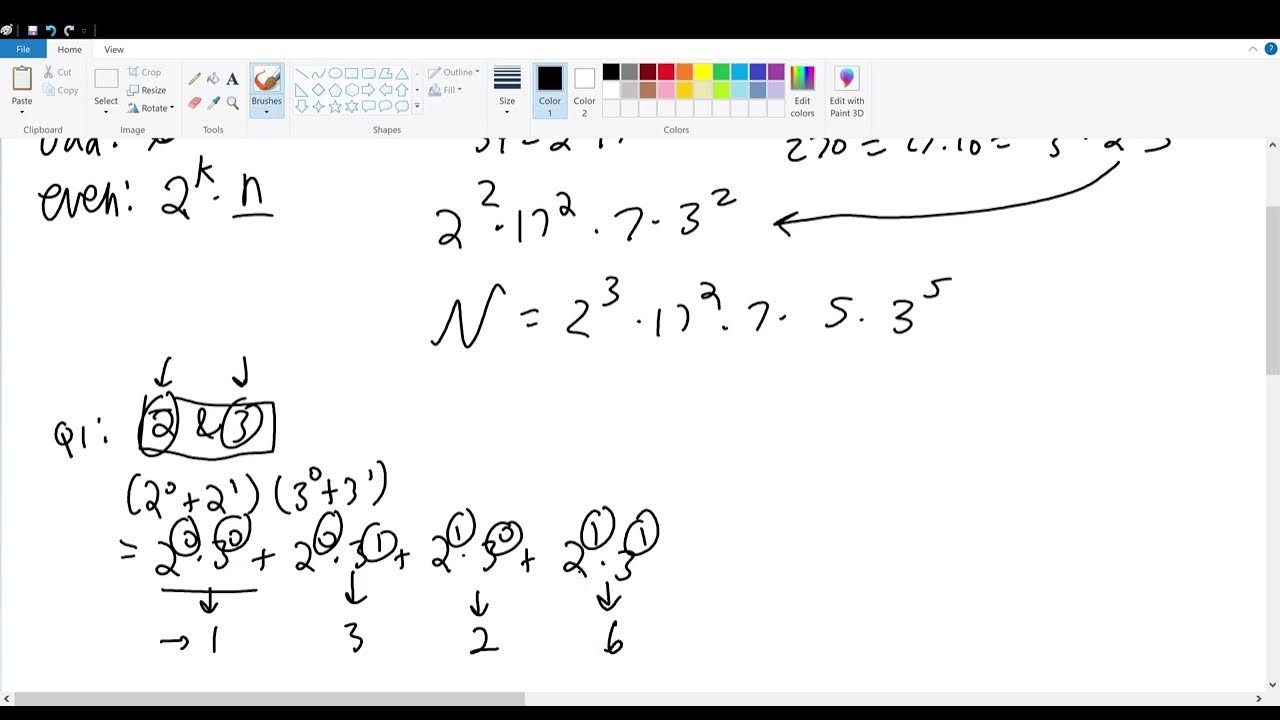 File Home View
Paste Cut Copy Select Crop Resize Rotate A Brushes Outline Fill Size Color 1 Color 2 Edit colors Edit with Paint 3D
Clipboard Image Tools Shapes Colors
even: 2^k · n
2^2 · 17^2 · 7 · 3^2
N = 2^3 · 17^2 · 7 · 5 · 3^5
Q1: 2 & 3
(2^0 + 2^1) (3^0 + 3^1)
= 2^0 · 3^0 + 2^0 · 3^1 + 2^1 · 3^0 + 2^1 · 3^1
→ 1 3 2 6